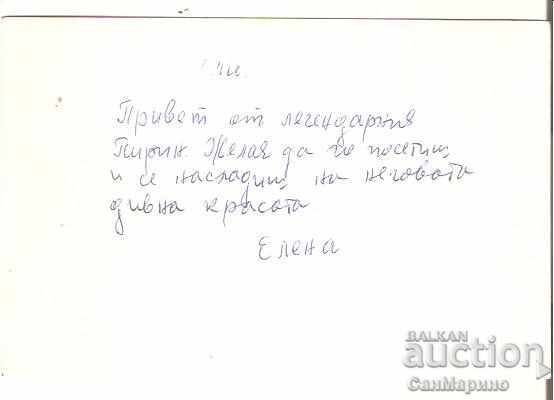 Привет от легендарния
Пирин. Желая да го посетиш
и се насладиш на неговата
дивна красота
Елена
BALKAN
auction
СанМарино